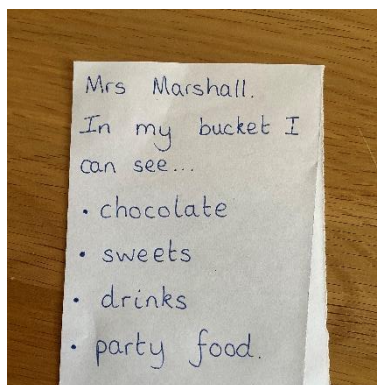 Mrs Marshall.
In my bucket I
can see...
• chocolate
• sweets
• drinks
• party food.